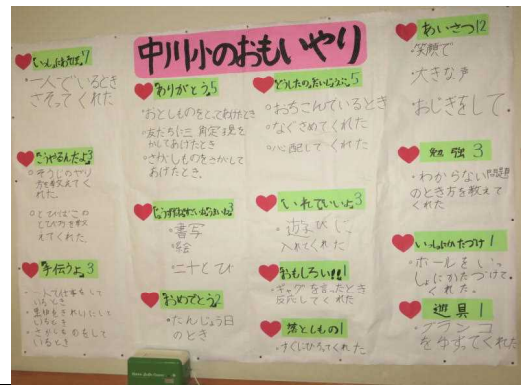 中川小のおもいやり
いっしょにあそぼ 7
・一人でいるとき
さそってくれた
こうやるんだよ 3
・そうじのやり
方を教えてく
れた。
・とびばこの
とび方を教
えてくれた。
手伝うよ 3
・一人で仕事をして
いるとき
・黒板をきれいにして
いるとき
・さがしものをして
いるとき
ありがとう 5
・おとしものをとってあげたとき
・友だちに三角定規を
かしてあげたとき
・さがしものをさがして
あげたとき。
・書写
・絵
・二十とび
おめでとう 2
・たんじょう日
のとき
どうしたの だいじょうぶ 5
・おちこんでいるとき
・なぐさめてくれた
・心配してくれた
いれていいよ 3
・遊びに
入れてくれた
おもしろい!! 1
・ギャグを言ったとき
反応してくれた
落としもの 1
・すぐにひろってくれた
あいさつ 12
・笑顔で
・大きな声
・おじぎをして
勉強 3
・わからない問題
のとき方を教えて
くれた
いっしょにかたづけ 1
・ボールをいっ
しょにかたづけて
くれた。
遊具 1
・ブランコ
をゆずってくれた